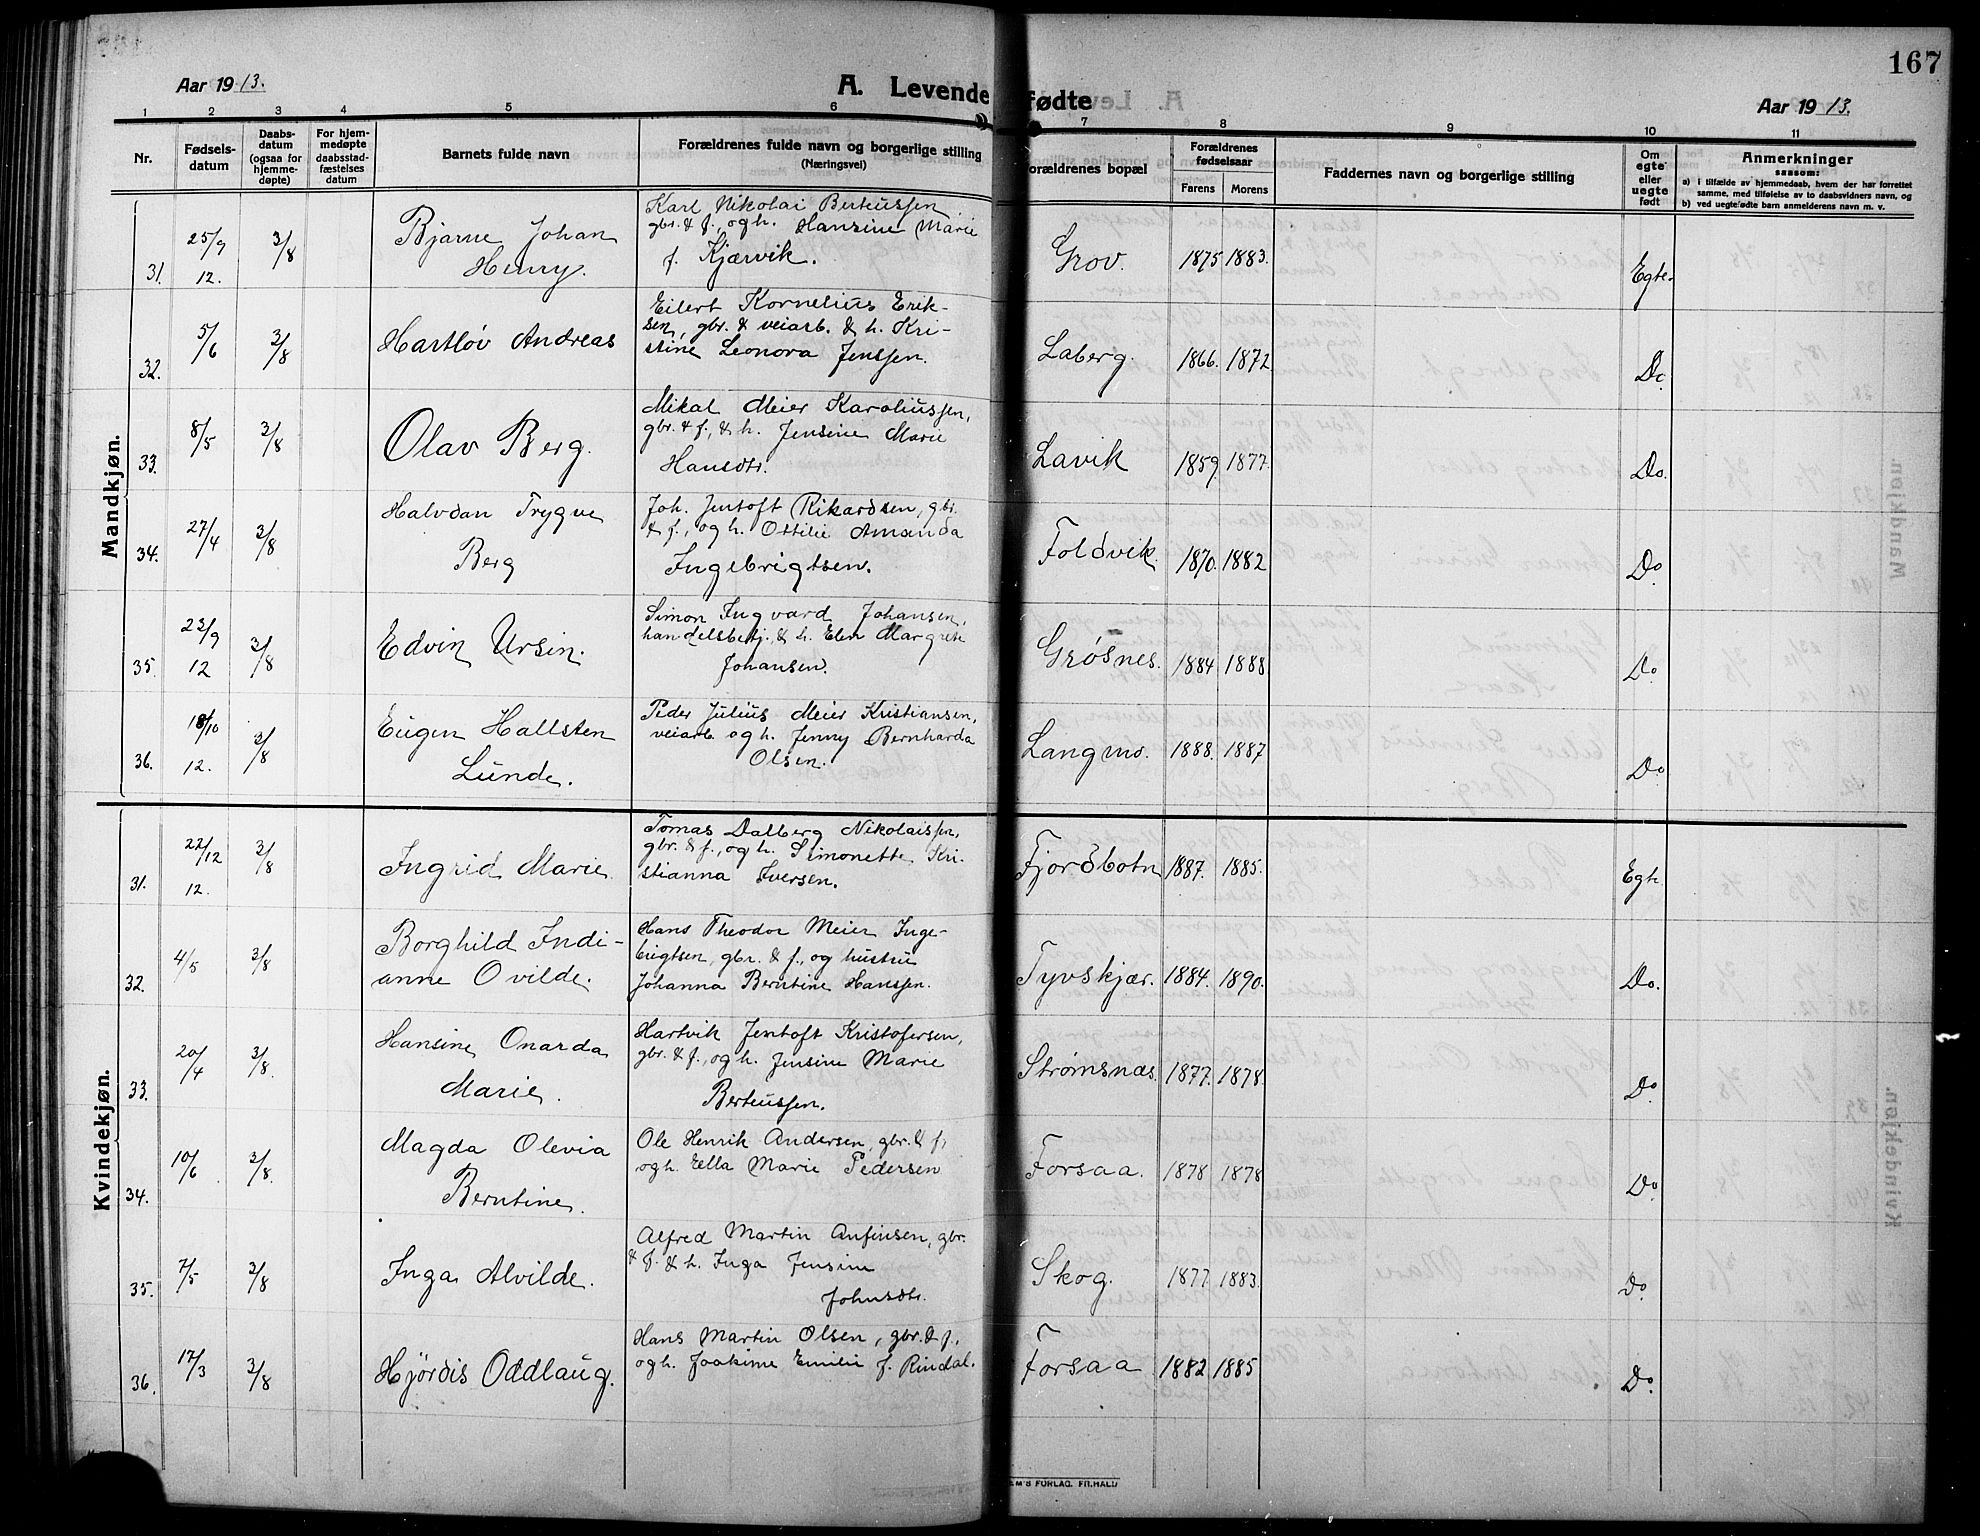 167
Aar 1913.
A. Levende fødte
Aar 1913.
1 2 3 4 5 6 7 8 9 10 11
Nr.
Fødsels-
datum
Daabs-
datum
(ogsaa for
hjemme-
døpte)
For hjem-
medøpte
daabsstad-
fæstelses
datum
Barnets fulde navn
Forældrenes fulde navn og borgerlige stilling
(Næringsvei)
Forældrenes bopæl
Forældrenes
fødselsaar
Farens Morens
Faddernes navn og borgerlige stilling
Om
egte
eller
uegte
født
Anmerkninger
saasom:
a) i tilfælde av hjemmedaab, hvem der har forrettet
samme, med tilføielse av to daabsvidners navn, og
b) ved uegtefødte barn anmelderens navn m. v.
Mandkjøn.
31. 25/9 12. 3/8
Bjarne Johan
Henry.
Karl Nikolai Berteussen
gbr. & f., og h. Hansine Marie
f. Kjærvik.
Grov. 1875 1883. Egte.
32. 5/6 3/8
Hartløv Andreas
Eilert Kornelius Erik-
sen, gbr. & veiarb. & h. Kri-
stine Leonora Jenssen.
Laberg. 1866. 1872 Do
33. 8/5 3/8
Olav Berg.
Mikal Meier Karoliussen,
gbr. & f., & h. Jensine Marie
Hansdtr.
Lavik 1859. 1877. Do.
34. 27/4 3/8
Halvdan Trygve
Berg
Joh. Jentoft Rikardsen, gbr.
& f., og h. Ottilie Amanda
Ingebrigtsen.
Foldvik. 1870. 1882 Do.
35. 23/9 12 3/8
Edvin Ursin.
Simon Ingvard Johansen,
handelsbetj., & h. Elen Margrete
Johansen.
Grøsnes. 1884 1888 Do.
36. 18/10 12. 3/8
Eugen Hallsten
Lunde.
Peder Julius Meier Kristiansen,
veiarb. og h. Jenny Bernharda
Olsen.
Langmo. 1888. 1887 Do
Kvindekjøn.
31. 22/12 12. 3/8
Ingrid Marie.
Tomas Dalberg Nikolaissen,
gbr. & f., og h. Simonette Kri-
stianna Iversen.
Fjordbotn 1887. 1885. Egte
32. 4/5 3/8
Borghild Indi-
anne Ovilde.
Hans Theodor Meier Inge-
brigtsen, gbr. & f., og hustru
Johanna Berntine Hanssen.
Tyvskjær. 1884. 1890. Do.
33. 20/4 3/8.
Hansine Onarda
Marie.
Hartvik Jentoft Kristofersen,
gbr. & f., og h. Jensine Marie
Berteussen.
Strømsnæs. 1877. 1878. Do.
34. 10/6 3/8.
Magda Olevia
Berntine.
Ole Henrik Andersen, gbr. & f,
og h. Ella Marie Pedersen
Forsaa. 1878 1878 Do.
35. 7/5 3/8
Inga Alvilde.
Alfred Martin Anfinsen, gbr.
& f. & h. Inga Jensine
Johnsdtr.
Skog. 1877 1883. Do.
36. 17/3 3/8
Hjørdis Oddlaug.
Hans Martin Olsen, gbr. & f.,
og h. Joakime Emilie f. Rindal.
Forsaa 1882 1885 Do.
M'S FORLAG. FR.HALD